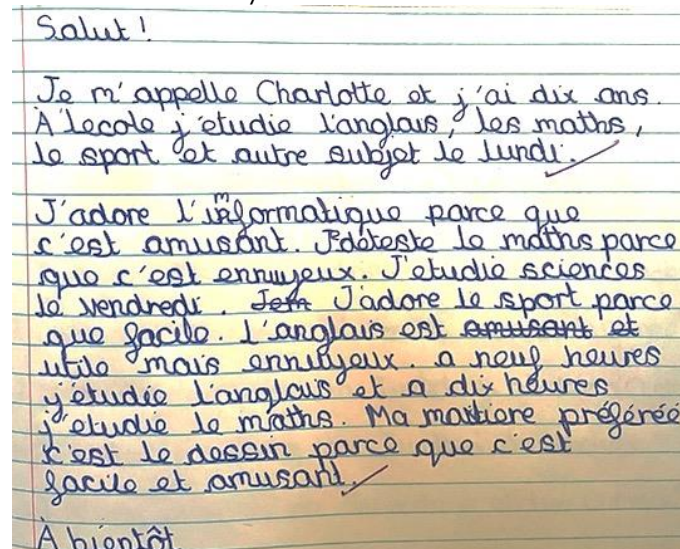 Salut!
Je m'appelle Charlotte et j'ai dix ans.
À lecole j'etudie l'anglais, les maths,
le sport et autre subjet le lundi.
J'adore l'informatique parce que
c'est amusant. J'déteste le maths parce
que c'est ennuyeux. J'etudie sciences
le vendredi. J'adore le sport parce
que facile. L'anglais est amusant et
utile mais ennuyeux. a neuf heures
j'étudie l'anglais et a dix heures
j'etudie le maths. Ma matiere préférée
c'est le dessin parce que c'est
facile et amusant.
À bientôt